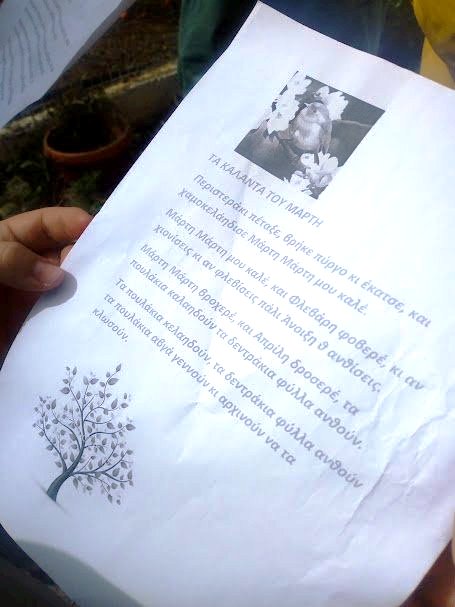 ΤΑ ΚΑΛΑΝΤΑ ΤΟΥ ΜΑΡΤΗ
Περιστεράκι πέταξε, βρήκε πύργο κι έκατσε, και
χαμοκελάηδισε Μάρτη Μάρτη μου καλέ.
Μάρτη Μάρτη μου καλέ, και Φλεβάρη φοβερέ, κι αν
χιονίσεις κι αν φλεβίσεις πάλι Άνοιξη θ ανθίσεις
Μάρτη Μάρτη βροχερέ, και Απρίλη δροσερέ, τα
πουλάκια καλαηδούν τα δεντράκια φύλλα ανθούν.
Τα πουλάκια κελαηδούν, τα δεντράκια φύλλα ανθούν
τα πουλάκια αβγά γεννούν κι αρχινούν να τα
κλωσούν.